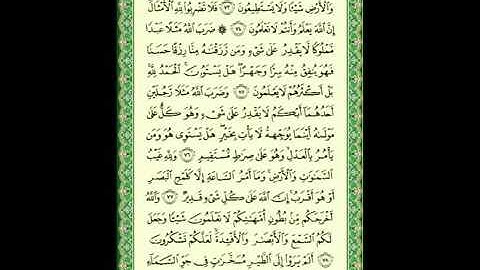 وَٱلْأَرْضِ شَيْـًٔا وَلَا يَسْتَطِيعُونَ ٧٣ فَلَا تَضْرِبُوا۟ لِلَّهِ ٱلْأَمْثَالَ
إِنَّ ٱللَّهَ يَعْلَمُ وَأَنتُمْ لَا تَعْلَمُونَ ٧٤ ۞ ضَرَبَ ٱللَّهُ مَثَلًا عَبْدًا
مَّمْلُوكًا لَّا يَقْدِرُ عَلَىٰ شَىْءٍ وَمَن رَّزَقْنَـٰهُ مِنَّا رِزْقًا حَسَنًا
فَهُوَ يُنفِقُ مِنْهُ سِرًّا وَجَهْرًا ۖ هَلْ يَسْتَوُۥنَ ۚ ٱلْحَمْدُ لِلَّهِ
بَلْ أَكْثَرُهُمْ لَا يَعْلَمُونَ ٧٥ وَضَرَبَ ٱللَّهُ مَثَلًا رَّجُلَيْنِ
أَحَدُهُمَآ أَبْكَمُ لَا يَقْدِرُ عَلَىٰ شَىْءٍ وَهُوَ كَلٌّ عَلَىٰ
مَوْلَىٰهُ أَيْنَمَا يُوَجِّههُّ لَا يَأْتِ بِخَيْرٍ ۖ هَلْ يَسْتَوِى هُوَ وَمَن
يَأْمُرُ بِٱلْعَدْلِ ۙ وَهُوَ عَلَىٰ صِرَٰطٍ مُّسْتَقِيمٍ ٧٦ وَلِلَّهِ غَيْبُ
ٱلسَّمَـٰوَٰتِ وَٱلْأَرْضِ ۚ وَمَآ أَمْرُ ٱلسَّاعَةِ إِلَّا كَلَمْحِ ٱلْبَصَرِ
أَوْ هُوَ أَقْرَبُ ۚ إِنَّ ٱللَّهَ عَلَىٰ كُلِّ شَىْءٍ قَدِيرٌ ٧٧ وَٱللَّهُ
أَخْرَجَكُم مِّنۢ بُطُونِ أُمَّهَـٰتِكُمْ لَا تَعْلَمُونَ شَيْـًٔا وَجَعَلَ
لَكُمُ ٱلسَّمْعَ وَٱلْأَبْصَـٰرَ وَٱلْأَفْـِٔدَةَ ۙ لَعَلَّكُمْ تَشْكُرُونَ
٧٨ أَلَمْ يَرَوْا۟ إِلَى ٱلطَّيْرِ مُسَخَّرَٰتٍ فِى جَوِّ ٱلسَّمَآءِ